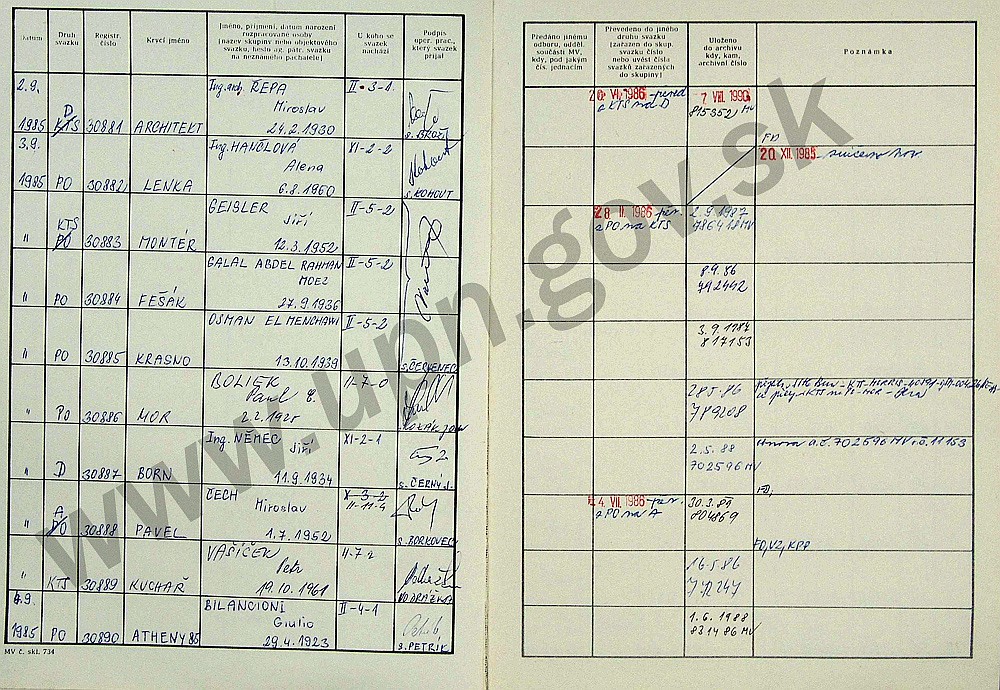 Datum
Druh svazku
Registr. číslo
Krycí jméno
Jméno, příjmení, datum narození
rozpracované osoby
(název skupiny nebo objektového
svazku, heslo az. pátr. svazku
na neznámého pachatele)
U koho se svazek nachází
Podpis oper. prac., který svazek přijal
Předáno jinému
odboru, odděl.
součásti MV,
kdy, pod jakým
čís. jednacím
Převedeno do jiného
druhu svazku
(zařazen do skup.
svazku číslo
nebo uvést čísla
svazků zařazených
do skupiny)
Uloženo
do archivu
kdy, kam,
archivní číslo
Poznámka
2.9. D Ing. arch. ŘEPA II-3-1
Miroslav
1985 KTS 30881 ARCHITEKT 24.2.1930 s. BROŽ
VI. 1986
a KTS na D
7 VIII. 1990
815352 MV
FD
3.9. Ing. HANČLOVÁ XI-2-2
Alena
1985 PO 30882 LENKA 6.8.1960 s. KOHOUT
20. XII. 1985
KTS GEISLER II-5-2
Jiří
" PO 30883 MONTÉR 12.3.1952
28 II. 1986
z PO na KTS
2.9.1987
786418 MV
GALAL ABDEL RAHMAN II-5-2
MOEZ
" PO 30884 FEŠÁK 27.9.1936
8.9.86
742442
OSMAN EL MENCHAWI II-5-2
" PO 30885 KRASNO 13.10.1939 s. ČERVENEC
3.9.1987
817153
BOLIEK II-7-0
Paul
" PO 30886 MOR 2.2.1925
28.5.86
789208
Ing. NĚMEC XI-2-1
Jiří
" D 30887 BORN 11.9.1934 s. ČERNÝ J.
2.5.88
702596 MV
a.č. 702596 MV
FD,
A ČECH X-3-2
Miroslav II-11-4
" PO 30888 PAVEL 1.7.1952 s. BORKOVEC
4. VII. 1986
z PO na A
30.3.89
804869
FO, VZ, KPP
VAŠÍČEK II-7-2
Petr
" KTS 30889 KUCHAŘ 19.10.1961 VODRÁŽKA
16.5.86
772247
4.9. BILANCIONI II-4-1
Giulio
1985 PO 30890 ATHENY 85 29.4.1923 s. PETRÍK
1.6.1988
831486 MV
MV č. skl. 734
www.upn.gov.sk